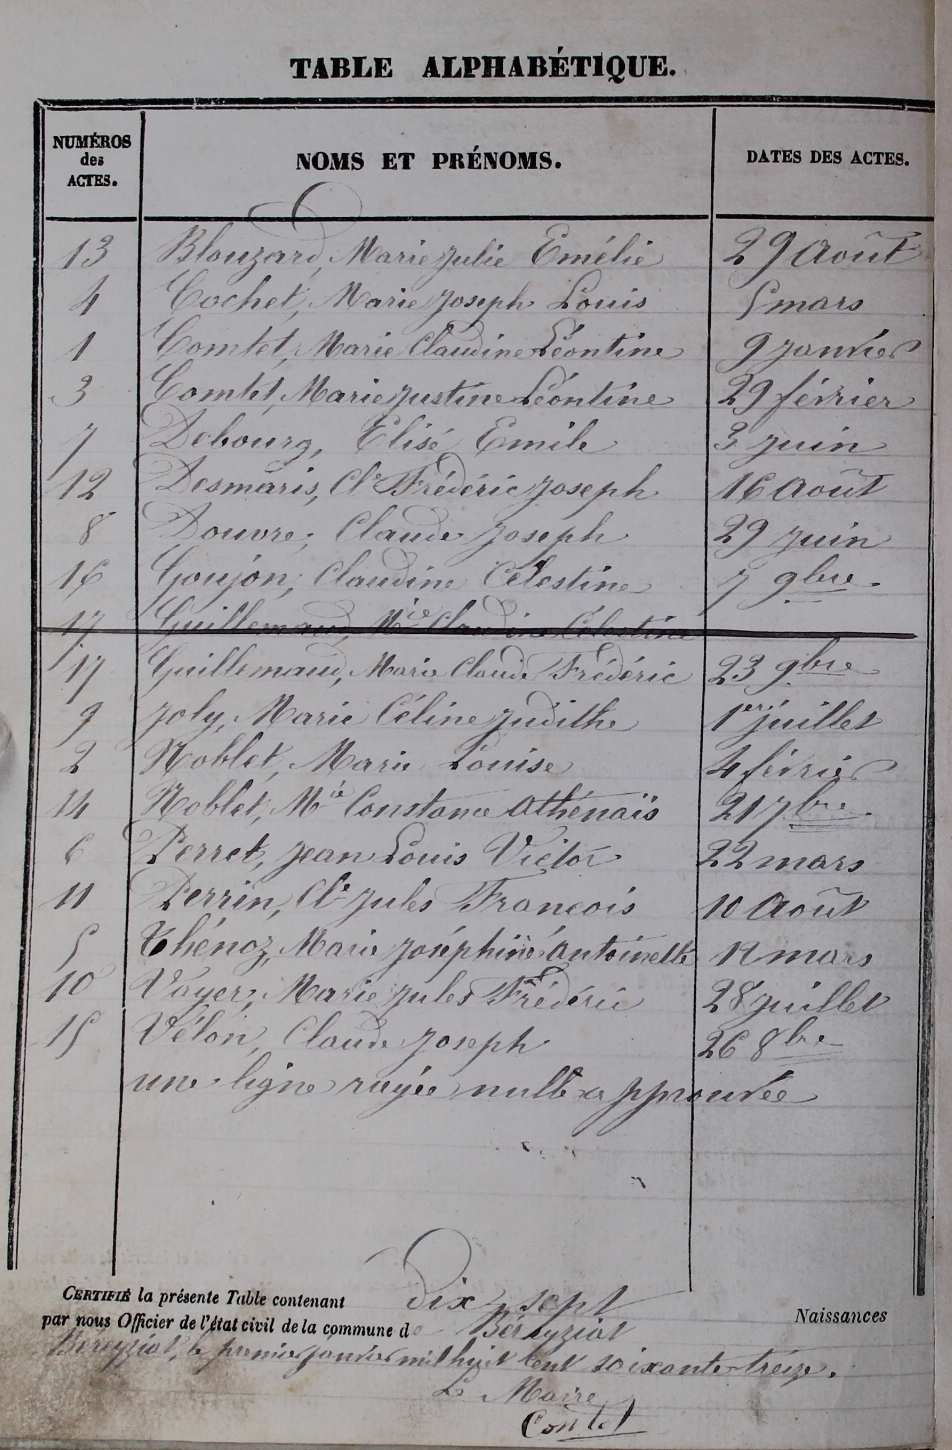 TABLE ALPHABÉTIQUE.
NUMÉROS des ACTES. NOMS ET PRÉNOMS. DATES DES ACTES.
13 Blouzard, Marie Julie Emélie 29 Août
4 Cochet, Marie Joseph Louis 5 mars
1 Comtet, Marie Claudine Léontine 9 janvier
3 Comtet, Marie Justine Léontine 29 février
7 Debourg, Elisé Emile 3 juin
12 Desmaris, Cde Frédéric Joseph 16 Août
8 Douvre, Claude Joseph 29 juin
16 Goujon, Claudine Célestine 7 9bre
17 Guillemaud, Mie Claudine Célestine
17 Guillemaud, Marie Claude Frédéric 23 9bre
9 Joly, Marie Céline Judithe 1er juillet
2 Noblet, Marie Louise 4 février
14 Noblet, Mie Constance Athénaïs 21 7bre
6 Perret, Jean Louis Victor 22 mars
11 Perrin, Cde Jules François 10 Août
5 Thénoz, Marie Joséphine Antoinette mars
10 Vayer, Marie Jules Frédéric 28 juillet
15 Vélon, Claude Joseph 26 8bre
une ligne rayée nulle approuvée
CERTIFIÉ la présente Table contenant dix-sept Naissances
par nous Officier de l'état civil de la commune de Béreyziat
Béreyziat, le premier janvier mil huit cent soixante-treize.
Le Maire
Comtet